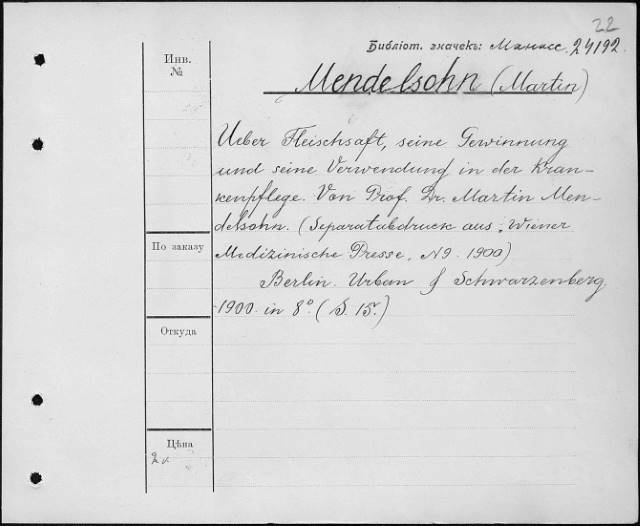 22
Библіот. значекъ: Манасс. 24192
Инв.
№
Mendelsohn (Martin)
Ueber Fleischsaft, seine Gewinnung
und seine Verwendung in der Kran-
kenpflege. Von Prof. Dr. Martin Men-
delsohn. (Separatabdruck aus „Wiener
Medizinische Presse, N9. 1900)
Berlin. Urban & Schwarzenberg.
1900. in 8°. (S. 15.)
По заказу
Откуда
Цѣна